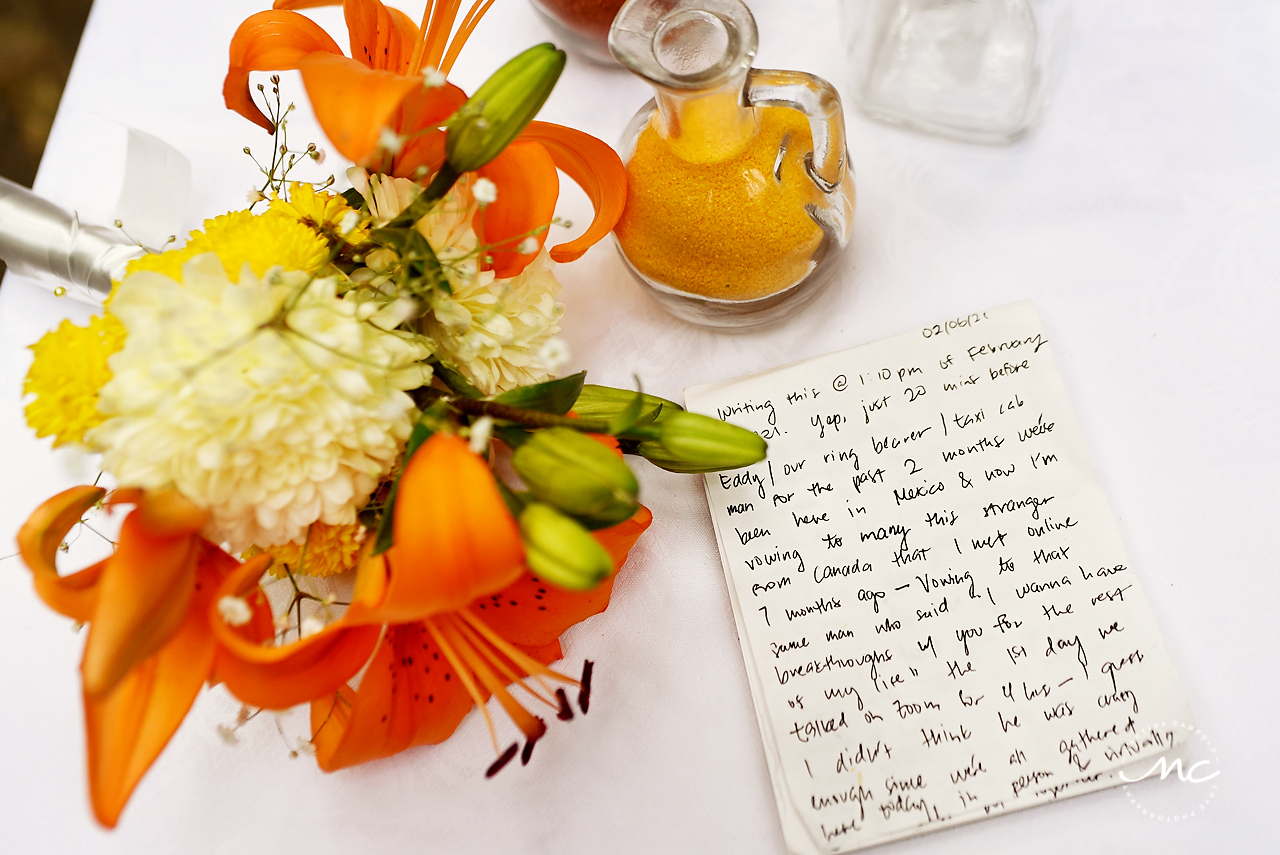 02/06/21
Writing this @ 1:10pm of February
21. Yep, just 20 mins before
Eddy / our ring bearer / taxi cab
man for the past 2 months we're
been here in Mexico & now I'm
vowing to many this stranger
from Canada that I met online
7 months ago – Vowing to that
same man who said "I wanna have
breakthroughs w/ you for the rest
of my life" the 1st day we
talked on Zoom for 4 hrs – I guess
I didn't think he was crazy
enough since we're all gathered
here today in person & virtually
together.
MC